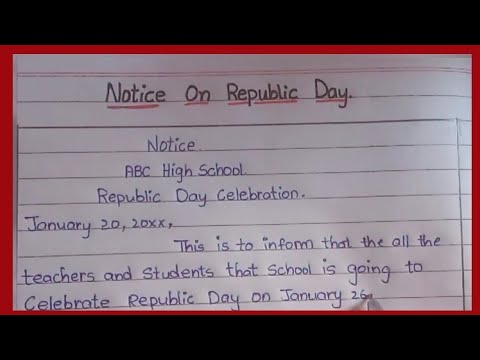 Notice On Republic Day.
Notice
ABC High School.
Republic Day Celebration.
January 20, 20xx,
This is to inform that the all the
teachers and Students that School is going to
Celebrate Republic Day on January 26